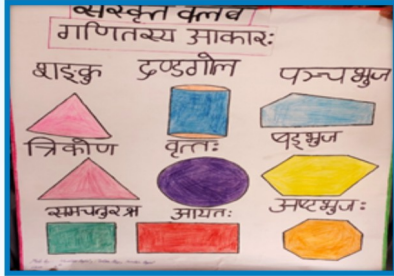 संस्कृत क्लब
गणितस्य आकार:
शङ्कु दण्डगोल पञ्चभुज
त्रिकोण वृत्तः षड्भुज
समचतुरश्र आयतः अष्टभुजः